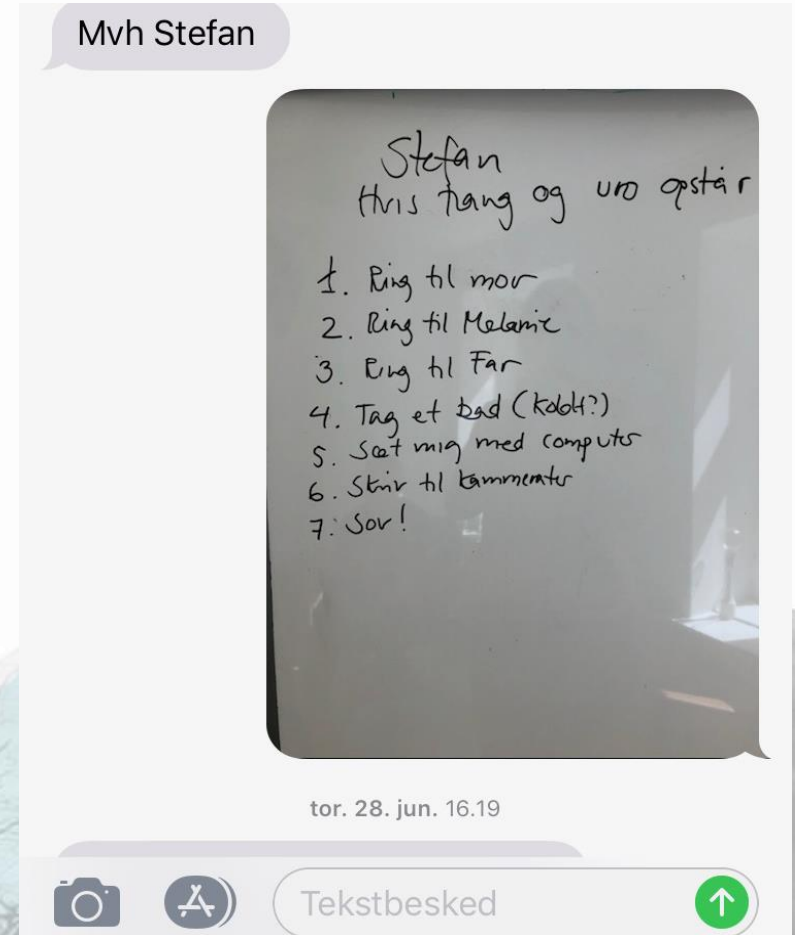 Mvh Stefan
Stefan
Hvis trang og uro opstår
1. Ring til mor
2. Ring til Melanie
3. Ring til Far
4. Tag et bad (koldt?)
5. Sæt mig med computer
6. Skriv til kammerater
7. Sov!
tor. 28. jun. 16.19
Tekstbesked